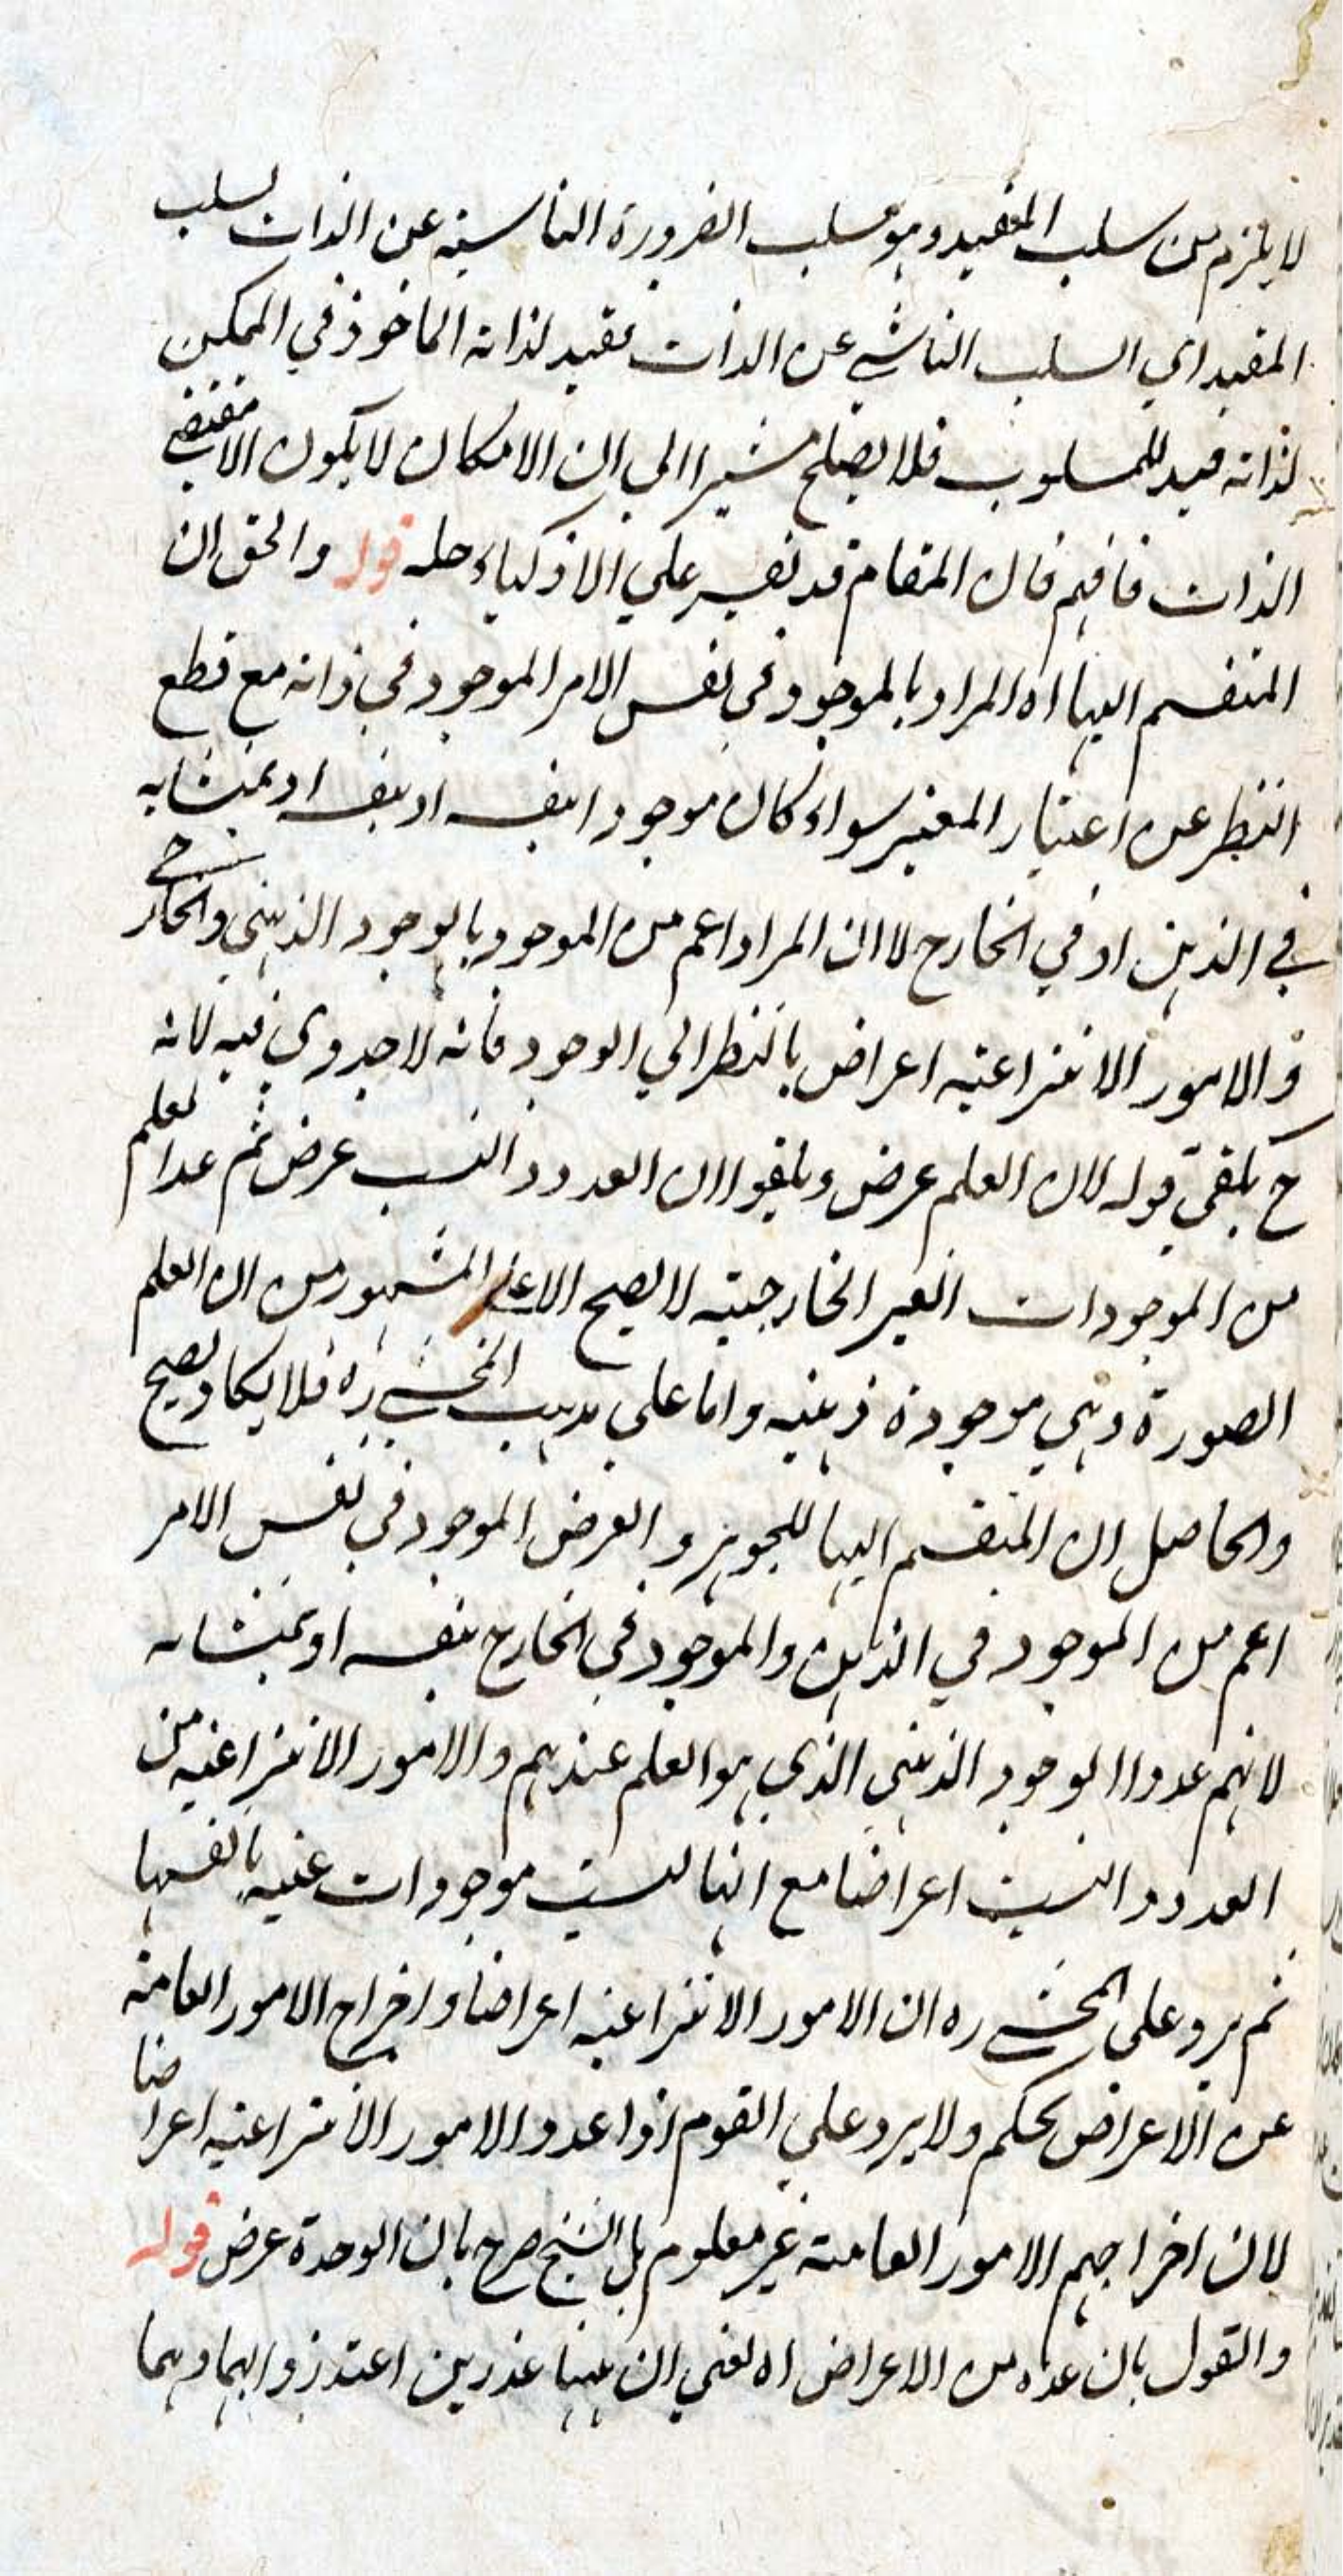 لا يلزم من سلب المقيد وهو سلب الضرورة الناشية عن الذات لسلب
المقيد اي السلب الناشي عن الذات مقيد لذاته الماخوذ في الممكن
لذاته قيد للمسلوب فلا يصلح مشيرا الي ان الامكان لا يكون الا مقتضي
الذات فافهم فان المقام قد تعسر علي الاذكياء حله قوله والحق ان
المنقسم اليها اه المراد بالموجود في نفس الامر الموجود في ذاته مع قطع
النظر عن اعتبار المعتبر سواء كان موجودا بنفسه او بمنشايه
في الذهن او في الخارج لا ان المراد اعم من الموجود بالوجود الذهني والخارجي
و الامور الانتزاعية اعراض بالنظر الي الوجود فانه لا جدوي فيه لانه
ح يلغي قوله لان العلم عرض ويلغو ان العدد والنسب عرض ثم عد العلم
من الموجودات الغير الخارجية لا يصح الا علي المشهور من ان العلم
الصورة وهي موجودة ذهنية واما علي مذهب المحشي ره فلا يكاد يصح
والحاصل ان المنقسم اليها للجوهر والعرض الموجود في نفس الامر
اعم من الموجود في الذهن والموجود في الخارج بنفسه او بمنشائه
لانهم عدوا الوجود الذهني الذي هو العلم عندهم والامور الانتزاعية من
العدد والنسب اعراضا مع انها ليست موجودات عينية بانفسها
ثم يرد علي المحشي ره ان الامور الانتزاعية اعراضا واخراج الامور العامة
عن الاعراض تحكم ولا يرد علي القوم اذا عدوا الامور الانتزاعية اعراضا
لان اخراجهم الامور العامة غير معلوم بل الشيخ صرح بان الوحدة عرض قوله
والقول بان عده من الاعراض اه لعني ان ههنا عذرين اعتذروا بهما وهما